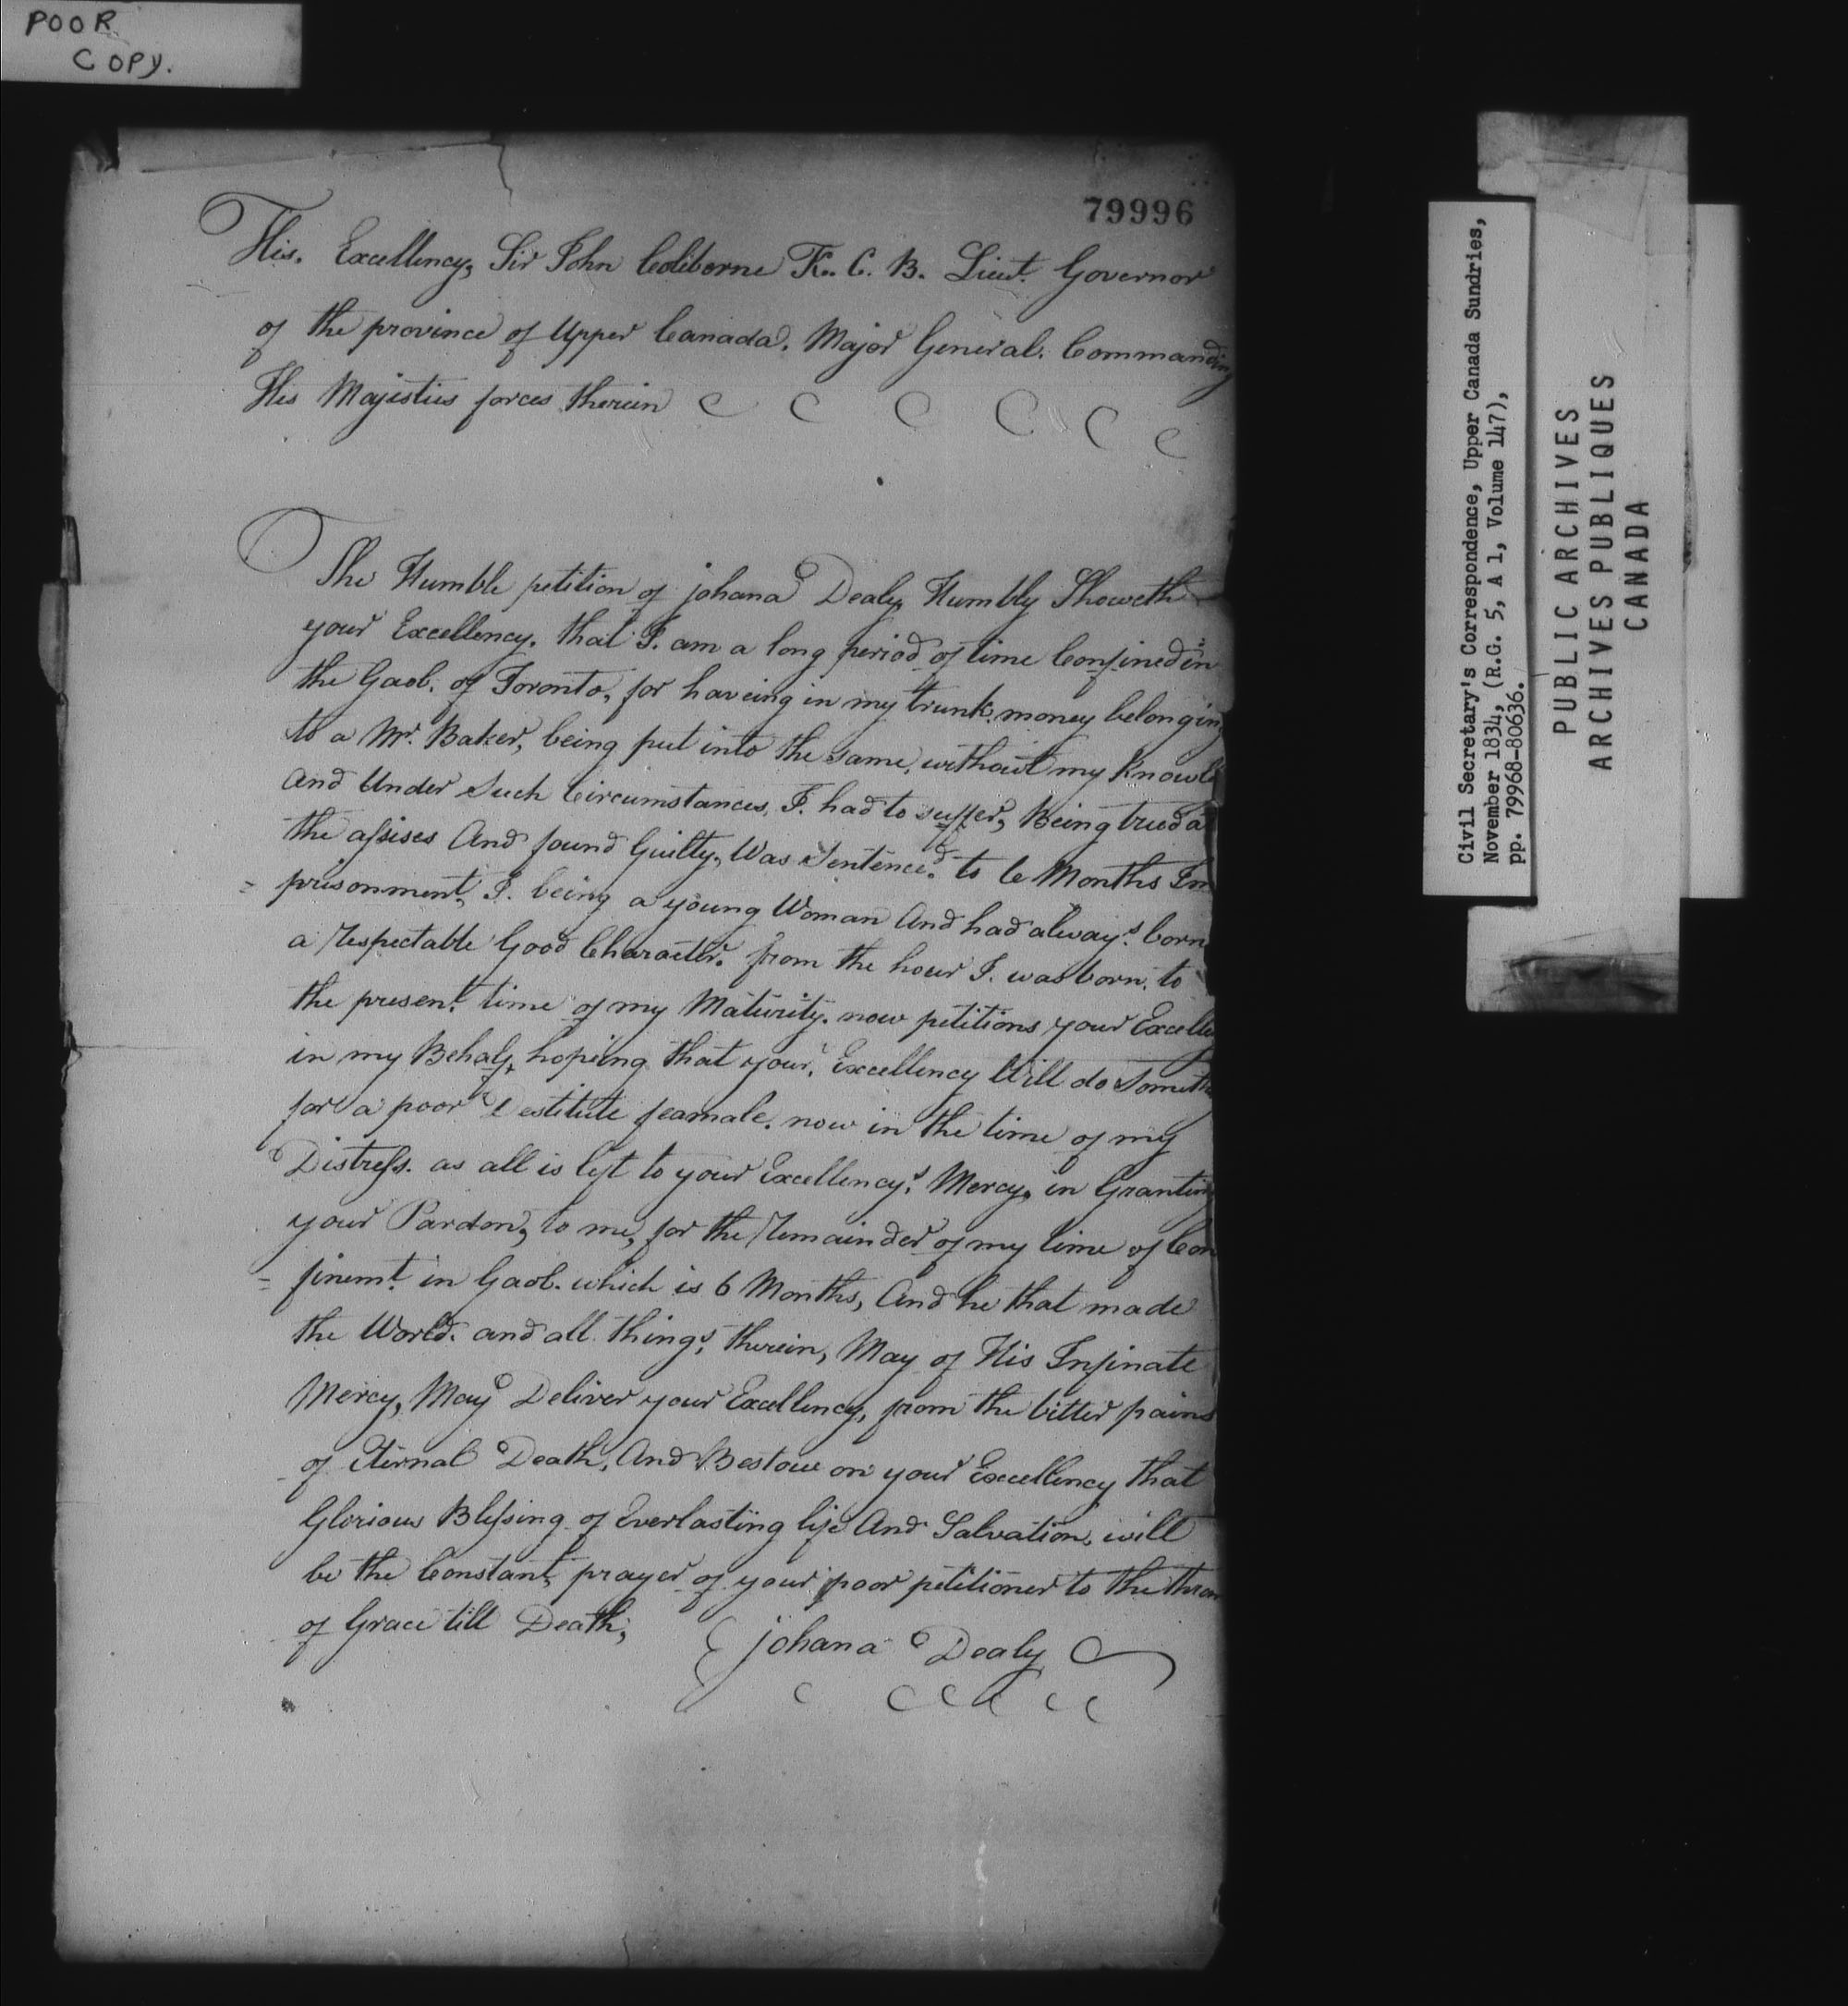 POOR
COPY.
79996
His. Excellency, Sir John Coleborne K. C. B. Lieut. Governor
of the province of Upper Canada. Major General. Commanding
His Majisties forces therein
The Humble petition of johana Dealy, Humbly Showeth
your Excellency. that I. am a long period of time Confined in
the Gaol. of Toronto, for haveing in my trunk. money belongin
to a Mr. Baker, being put into the same, without my Knowle
and Under Such Circumstances, I. had to suffer, Being tried at
the assises And found Guilty, Was Sentenced. to 6 Months Im
= prisonment, I. being a young Woman And had always. born
a respectable Good Character. from the hour I. was born, to
the present. time of my Maturity. now petitions your Excelle
in my Behalf, hopeing that your, Excellency Will do Someth
for a poor Destitute feamale. now in the time of my
Distress. as all is left to your Excellency's Mercy, in Granting
your Pardon, to me, for the remainder of my time of Con
= finemt. in Gaol. which is 6 Months, And he that made
the World. and all things, therein, May of His Infinate
Mercy, May Deliver your Excellency, from the bitter pains
of Eternal Death, And Bestow on your Excellency that
Glorious Blessing of Everlasting life And Salvation, will
be the Constant, prayer of your poor petitioner to the thron
of Grace till Death,
johana Dealy
Civil Secretary's Correspondence, Upper Canada Sundries,
November 1834, (R.G. 5, A 1, Volume 147),
pp. 79968-80636.
PUBLIC ARCHIVES
ARCHIVES PUBLIQUES
CANADA